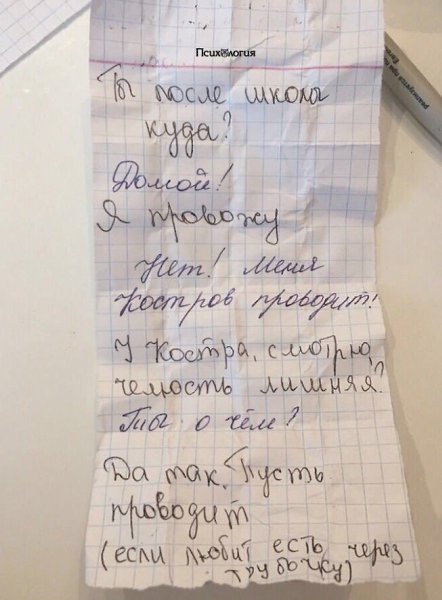 Психология
Ты после школы
куда?
Домой!
Я провожу
Нет! Меня
Костров проводит!
У Костра, смотрю,
челюсть лишняя?
Ты о чём?
Да так. Пусть
проводит
(если любит есть через
трубочку)